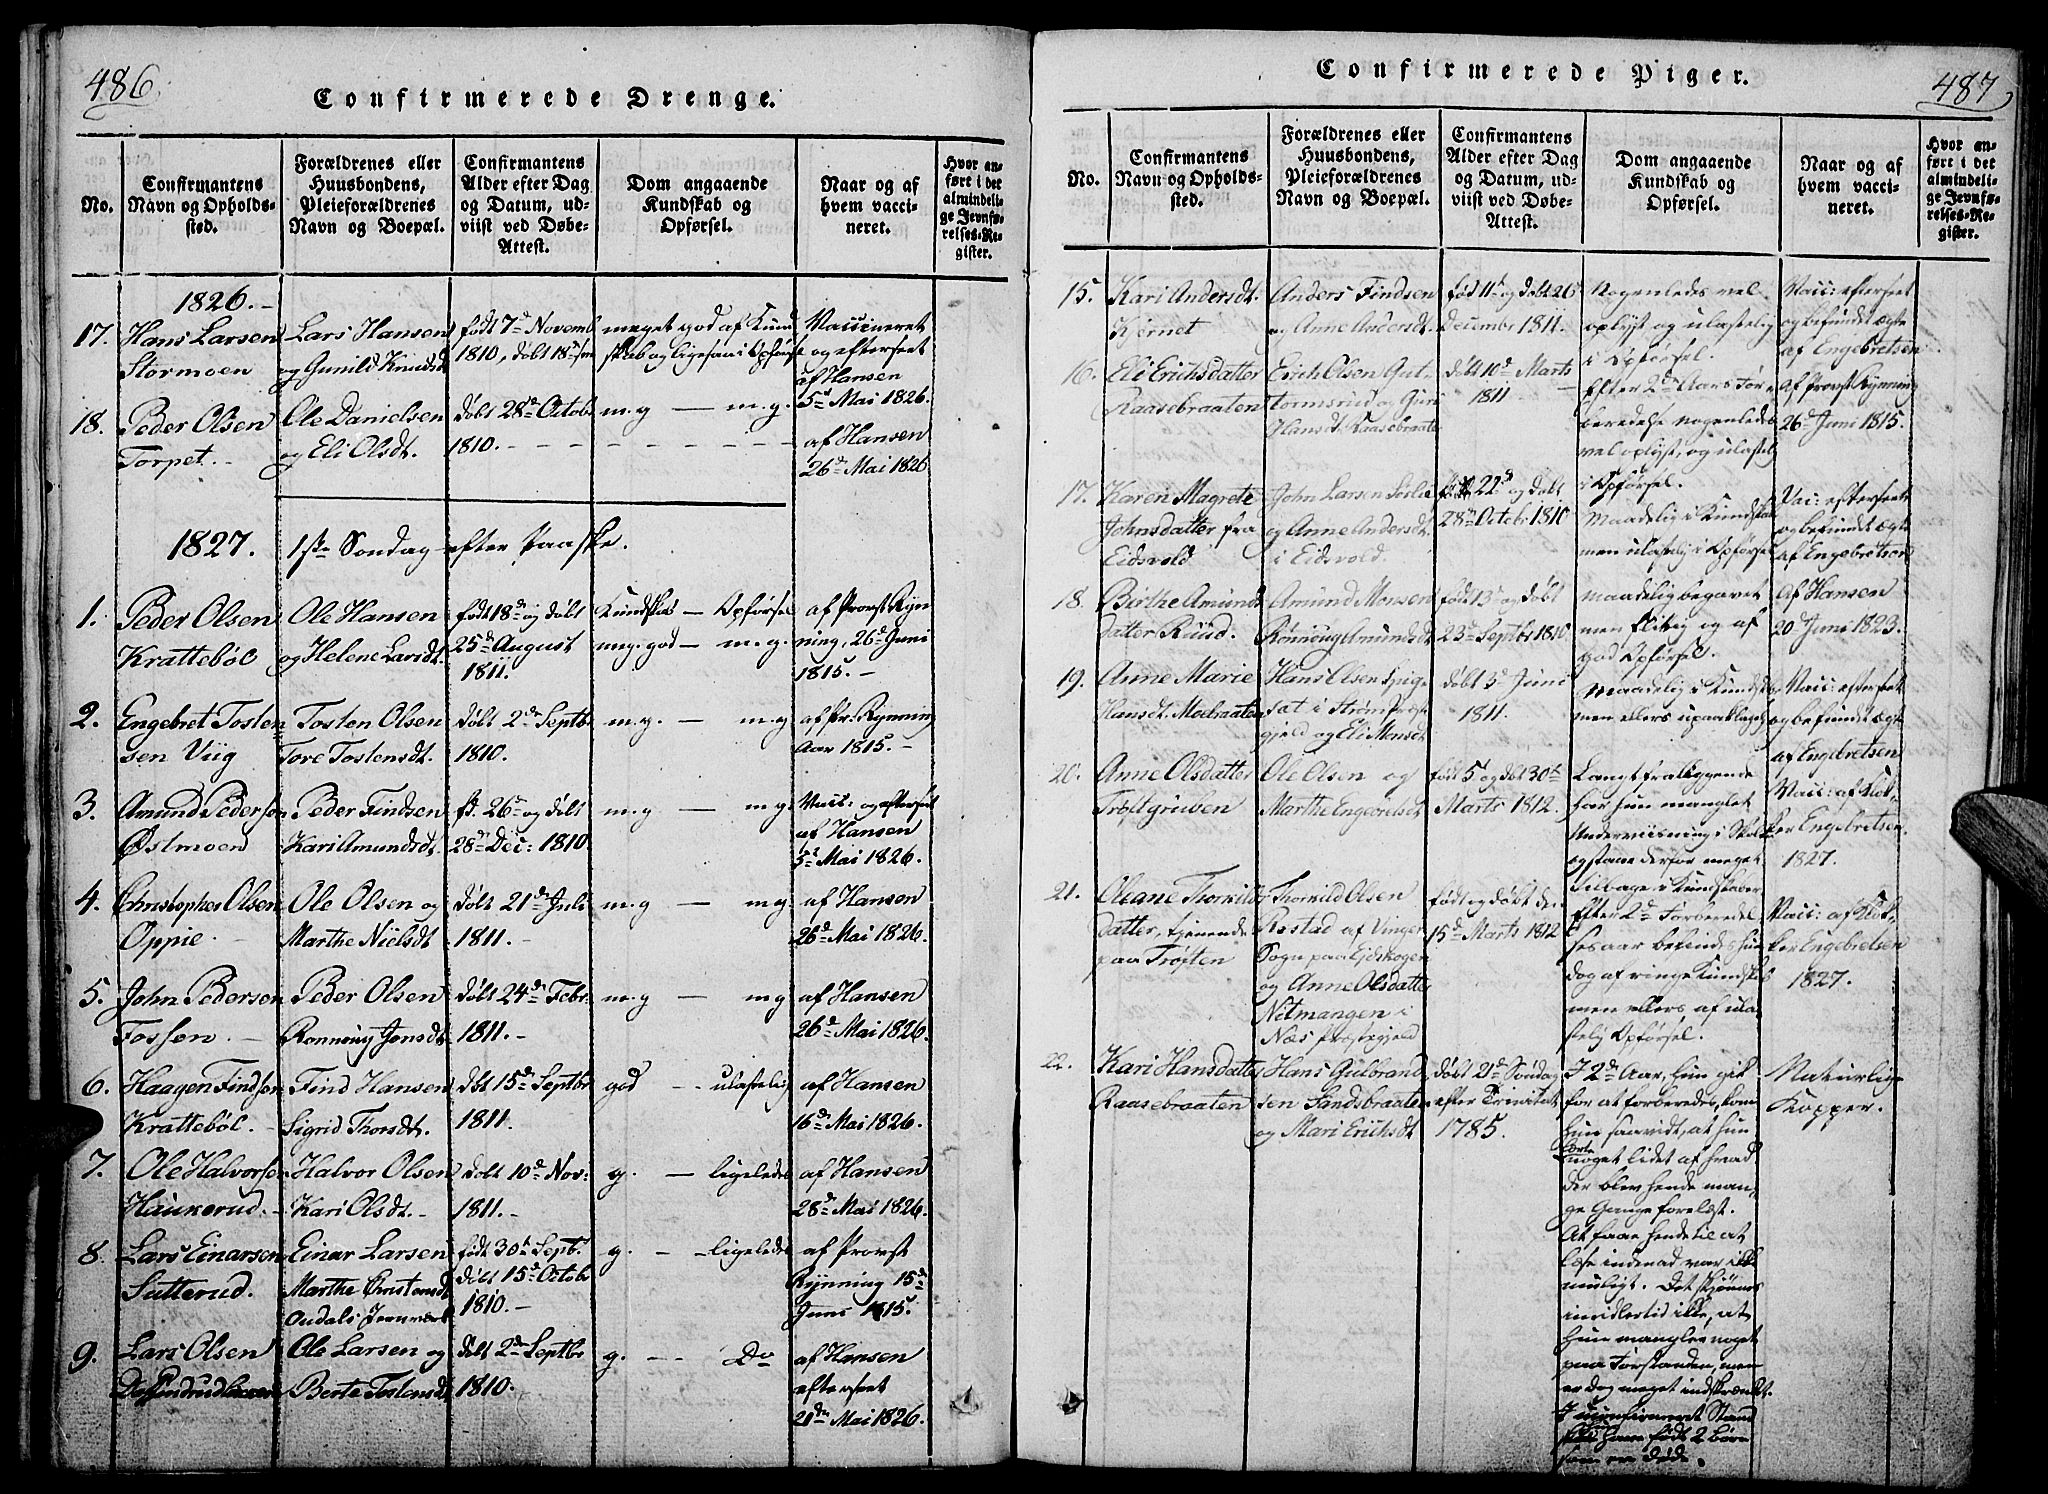 486.
Confirmerede Drenge.
No.
Confirmantens
Navn og Opholds-
sted.
Forældrenes eller
Huusbondens,
Pleieforældrenes
Navn og Boepæl.
Confirmantens
Alder efter Dag
og Datum, ud-
viist ved Døbe-
Attest.
Dom angaaende
Kundskab og
Opførsel.
Naar og af
hvem vacci-
neret.
Hvor an-
ført i det
almindeli-
ge Jevnfø-
relses-Re-
gister.
1826.
17. Hans Larsen
Stormoen
Lars Hansen
og Gunild Knudsd.
født 7de Novemb.
1810, døbt 18de
meget god af Kund
skab og ligesaa i Opførs.
Vaccineret
og efterseet
af Hansen
5te Mai 1826.
18. Peder Olsen
Torpet.
Ole Danielsen
og Eli Olsdt.
døbt 28de Octob.
1810.
m.g — m.g.
af Hansen
26de Mai 1826
1827. 1ste Søndag efter Paaske.
1. Peder Olsen
Krattebøl
Ole Hansen
og Helene Larsdt.
født 18de og døbt
25de August
1811.
Kundskab — Opførsel
meg. god — m.g.
af Provst Ryn
ning, 26de Juni
1815.
2. Engebret Tosten
sen Viig
Tosten Olsen
Tore Tostensdt.
døbt 2de Septbr
1810.
m.g. — m.g
af Pr: Rynning
Aar 1815.
3. Amund Pedersen
Østmoen
Peder Findsen
Kari Amundsdt.
fd. 26de og døbt
28de Dec: 1810.
m.g m.g.
Vacc: og efterseet
af Hansen
5te Mai 1826.
4. Christopher Olsen
Oppie.
Ole Olsen og
Marthe Nielsdt
døbt 21de Juli
1811.
m.g — m.g
af Hansen
26de Mai 1826.
5. John Pedersen
Fossen.
Peder Olsen
Rønnoug Jensdt
døbt 24de Febr.
1811.
m.g — m.g
af Hansen
26de Mai 1826.
6. Haagen Findsen
Krattebøl.
Find Hansen
Sigrid Thorsdt.
døbt 15de Septbr
1811.
god — ulastelig
af Hansen
16de Mai 1826.
7. Ole Halvorsen
Haukerud.
Halvor Olsen
Kari Olsdt.
døbt 10de Nov:
1811.
g. — ligeledes
af Hansen
28de Mai 1826.
8. Lars Einarsen
Sætterud.
Einar Larsen
Marthe Christensdt
Oudals Jernværk
født 30te Septb.
døbt 15de Octob.
1810.
g. — ligeledes
af Provst
Rynning 15de
Juni 1815.
9. Lars Olsen
Ole Larsen og
Berte Tostensdt
døbt 2de Septbr
1810.
g. — Do
af Hansen
efterseet
21de Mai 1826.
487
Confirmerede Piger.
No.
Confirmantens
Navn og Opholds-
sted.
Forældrenes eller
Huusbondens,
Pleieforældrenes
Navn og Boepæl.
Confirmantens
Alder efter Dag
og Datum, ud-
viist ved Døbe-
Attest.
Dom angaaende
Kundskab og
Opførsel.
Naar og af
hvem vacci-
neret.
Hvor an-
ført i det
almindeli-
ge Jevnfø-
relses-Re-
gister.
15. Kari Andersdt.
Kjernet
Anders Findsen
og Anne Andersdt.
fød 11te og døbt 26de
Decembr 1811.
Nogenledes vel
oplyst og ulastelig
i Opførsel.
Vacc: efterseet
og befundet ægte
af Engebretsen
16. Eli Erichsdatter
Raasebraaten
Erich Olsen Gut
tormsrud og Guri
Hansdt. Raasebraate
døbt 10de Marts
1811
Efter 2de Aars For
beredelse nogenledes
vel oplyst, og ulastelig
i Opførsel.
af Provst Rynning
26de Juni 1815.
17. Karen Magrete
Johnsdatter fra
Eidsvold
John Larsen Sørlie
og Anne Andersdt.
i Eidsvold.
22de og døbt
28de Octobr 1810
Maadelig i Kundskab
men ulastelig i Opførsel
Vac: efterseet
og befundet ægte
af Engebretsen
18. Birthe Amunds
datter Ruud.
Amund Monsen
Rønnoug Amundsdt
født 13de og døbt
23de Septbr 1810
Maadelig begavet
men flittig og af
god Opførsel.
af Hansen
20de Juni 1823.
19. Anne Marie
Hansdt. Moebraaten
Hans Olsen
sat i Strøm Præste
gjeld og Eli Monsdt
døbt 3de Juni
1811.
Maadelig i Kundskab
men ellers upaaklagelig
Vacc: efterseet
og befundet ægte
af Engebretsen
20. Anne Olsdatter
Trøftgruben
Ole Olsen og
Marthe Engebretsdt
født 5te og døbt 30te
Marts 1812.
Langt fraliggende
har hun manglet
Underviisning i Skole
og staar derfor meget
tilbage i Kundskaber
Vacc: af Klok-
ker Engebretsen.
1827.
21. Oleane Thorkilds
datter, tjenende
paa Trøften
Thorkild Olsen
Rostad af Vinger
Sogn paa Ejdskogen
og Anne Olsdatter
Nitmangen i
Næs Præstegjeld
født og døbt den
15de Marts 1812
Efter 2de Forberedel
sesaar befindes hun
dog af ringe Kundskab
men ellers af ula
stelig Opførsel.
Vacc: af Klok-
ker Engebretsen
1827.
22. Kari Hansdatter
Raasebraaten
Hans Gulbrand
sen Sandsbraaten
og Mari Erichsdt
døbt 21de Søndag
efter Trinitatis
1785.
I 2de Aar, hun gik
for at forberedes, kom
hun saavidt, at hun
lærte
noget lidet af hvad
der blev hende man-
ge Gange forelæst.
At faae hende til at
læse indenad var ikke
muligt. Det skjønnes
imidlertid ikke, at
hun mangler noget
paa Forstanden, men
er dog meget indskrænket.
I uconfirmeret Stand
har hun født 2 Børn
som ere døde.
Naturlige
Kopper.